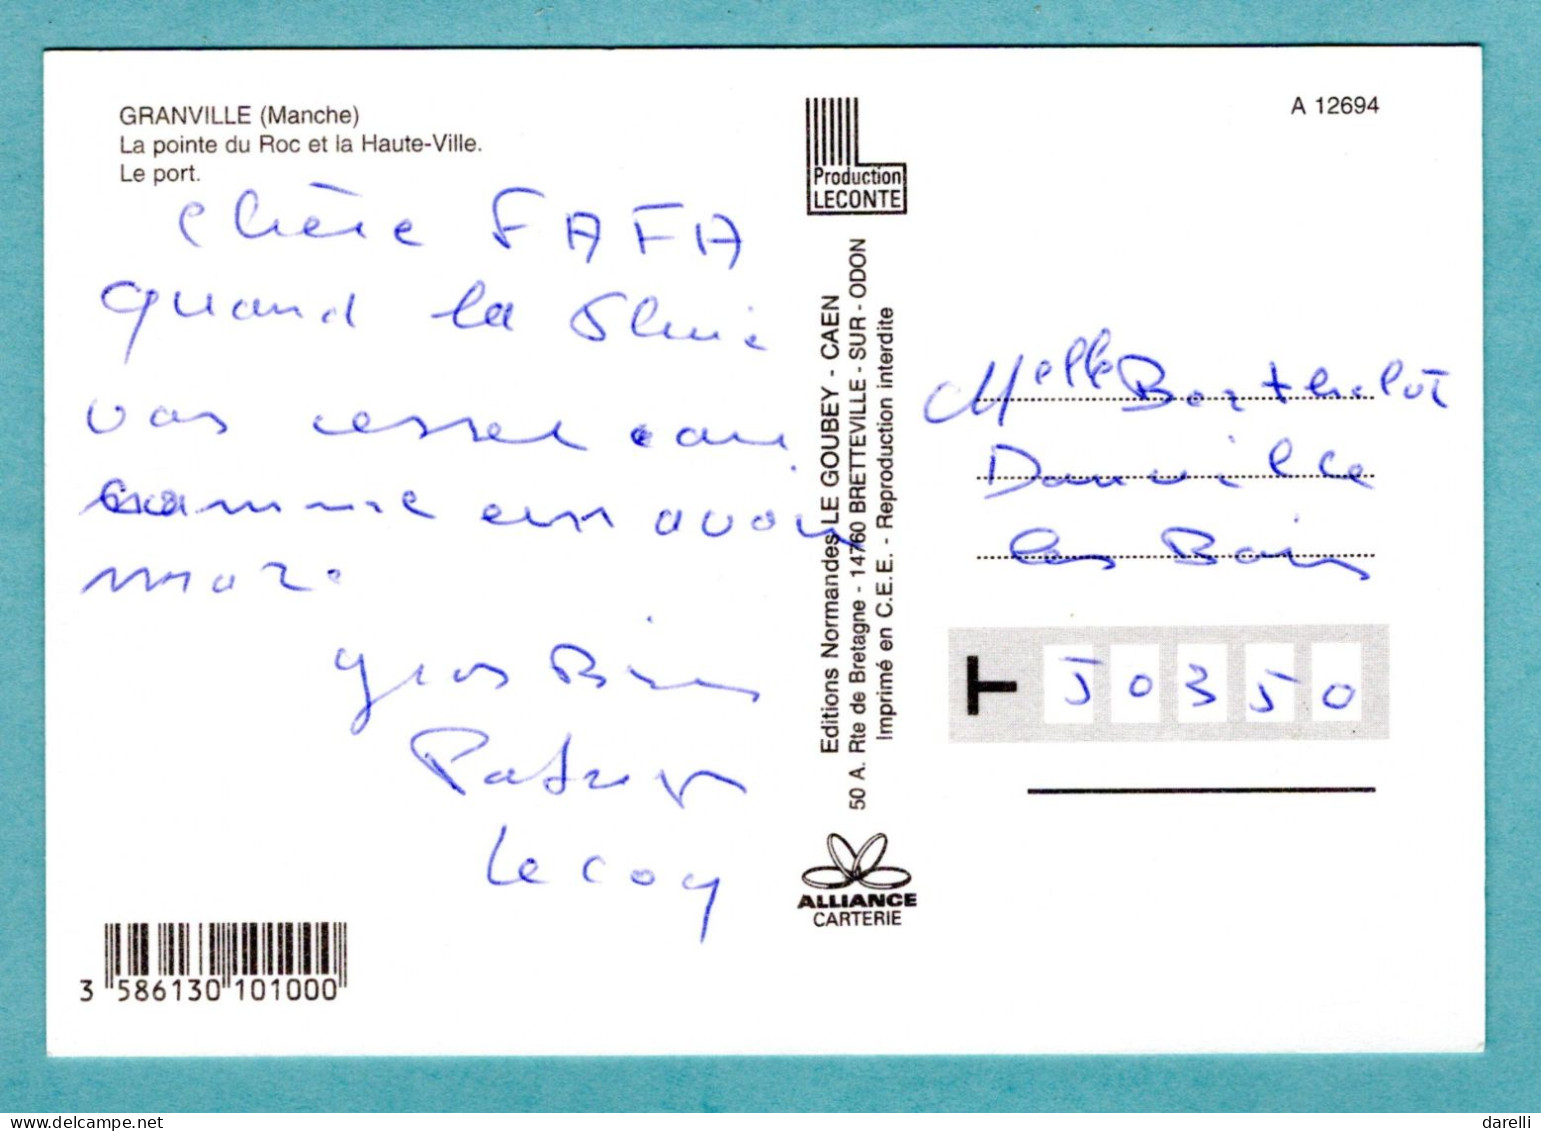 GRANVILLE (Manche)
La pointe du Roc et la Haute-Ville.
Le port.
chère FAFA
quand la Pluie
vas cesser car
comme en avoir
mar.
gros Bisous
Lecoq
3 586130 101000
Production
LECONTE
Editions Normandes LE GOUBEY - CAEN
50 A. Rte de Bretagne - 14760 BRETTEVILLE - SUR - ODON
Imprimé en C.E.E. - Reproduction interdite
ALLIANCE
CARTERIE
A 12694
Melle Berthelot
Donville
les Bains
50350
darelli